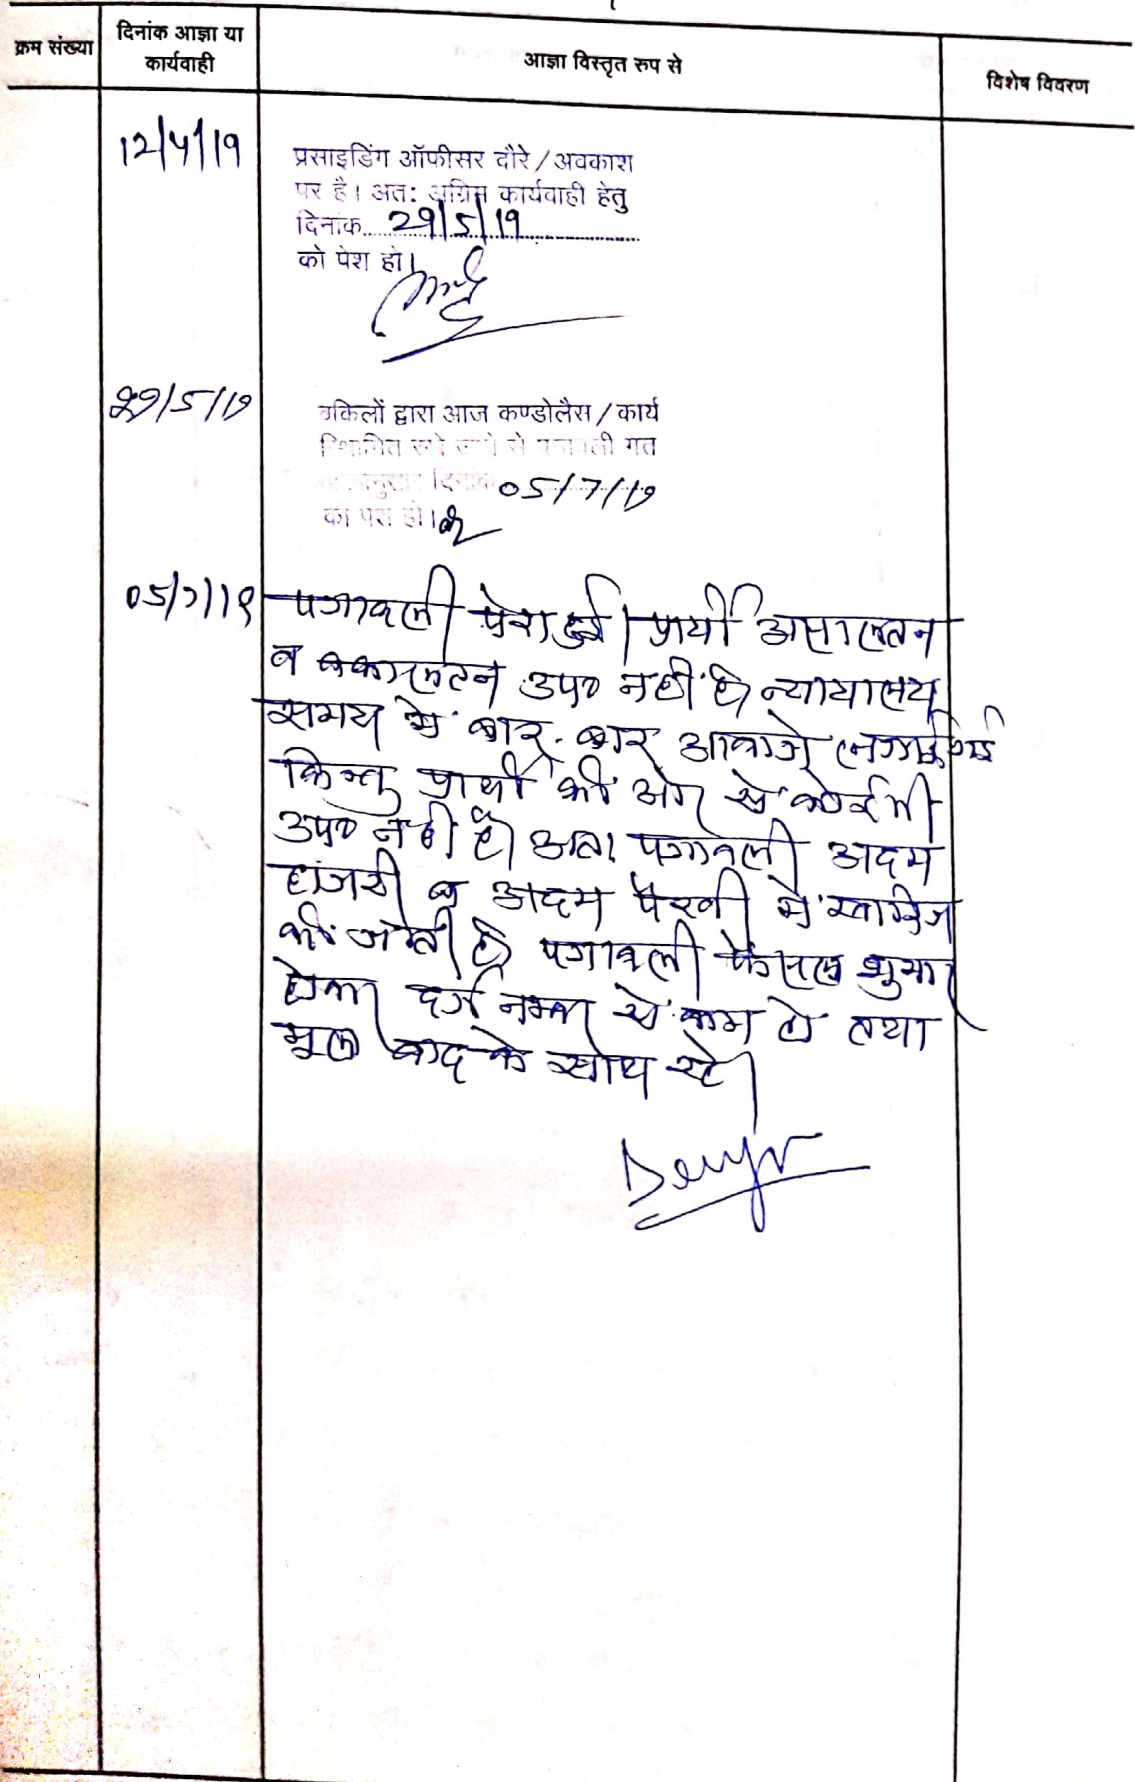 क्रम संख्या
दिनांक आज्ञा या
कार्यवाही
आज्ञा विस्तृत रुप से
विशेष विवरण
12/4/19
प्रसाइडिंग ऑफीसर दौरे / अवकाश
पर है। अतः अग्रिम कार्यवाही हेतु
दिनांक 29/5/19
को पेश हो।
29/5/19
वकिलों द्वारा आज कण्डोलैस / कार्य
स्थगित रखे जाने से पत्रावली गत
दिनांक 05/7/19
को पेश हो।
05/7/19
पत्रावली पेश हुई। प्रार्थी असालतन
व वकालतन उप० नहीं है। न्यायालय
समय में बार-बार आवाजे लगाई गई
किन्तु प्रार्थी की ओर से कोई भी
उप० नही है। अतः पत्रावली अदम
हाजरी व अदम पैरवी में खारिज
की जाती है। पत्रावली फैसल शुमार
होकर दर्ज नम्बर से कम हो तथा
मूल वाद के साथ रहे।